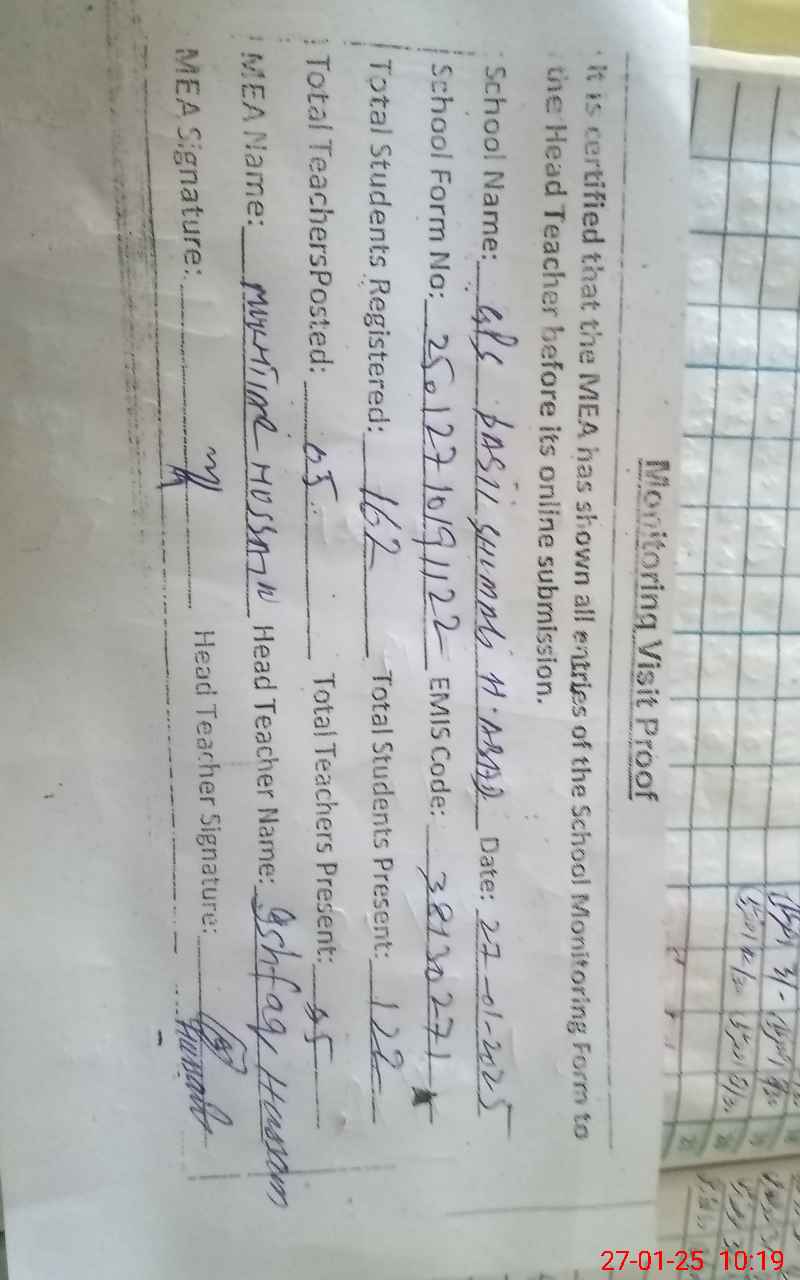 Monitoring Visit Proof
It is certified that the MEA has shown all entries of the School Monitoring Form to
the Head Teacher before its online submission.
School Name: GPS BASTI H.ABAD Date: 27-01-2025
School Form No: 25012710191122 EMIS Code: 38130271
Total Students Registered: 162 Total Students Present: 122
Total TeachersPosted: 05 Total Teachers Present: 05
MEA Name: Hussain Head Teacher Name: Ishfaq Hussain
MEA Signature: Head Teacher Signature:
27-01-25 10:19